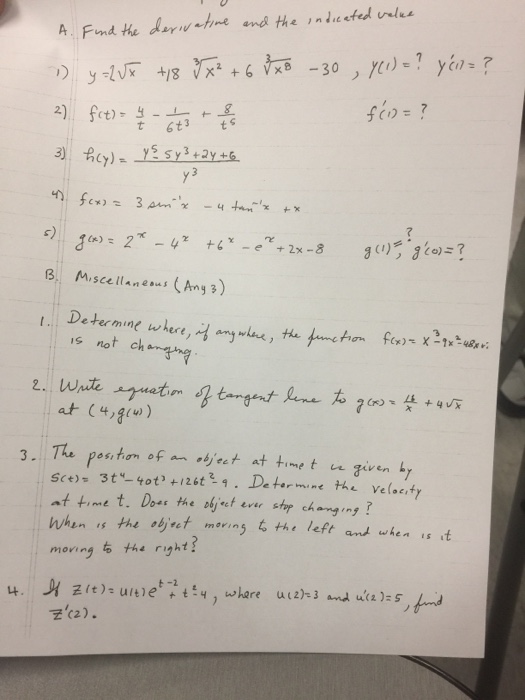 A. Find the derivative and the indicated value
1) y = 2√x + 18 ∛x² + 6 ∛x⁸ - 30 , y(1) = ? y'(1) = ?
2) f(t) = 4/t - 1/6t³ + 8/t⁵ f'(1) = ?
3) h(y) = y⁵ 5y³ + 2y + 6 / y³
4) f(x) = 3 sin⁻¹x - 4 tan⁻¹x + x
5) g(x) = 2ˣ - 4ˣ + 6ˣ - eˣ + 2x - 8 g(1) = ?, g'(0) = ?
B. Miscellaneous (Any 3)
1. Determine where, if anywhere, the function f(x) = x³ - 9x² - 48x
is not changing.
2. Write equation of tangent line to g(x) = 16/x + 4√x
at (4, g(4))
3. The position of an object at time t is given by
S(t) = 3t⁴ - 40t³ + 126t² - 9. Determine the velocity
at time t. Does the object ever stop changing?
When is the object moving to the left and when is it
moving to the right?
4. If z(t) = u(t)e^(t-2) + t² 4, where u(2) = 3 and u'(2) = 5, find
z'(2).